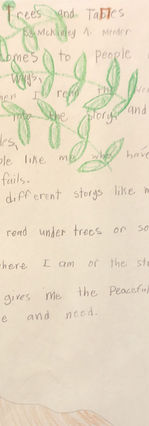 Trees and Tables
By McKinley A.
comes to people
ways,
en I read the
into the story and
ple like me who have
fails.
different storys like m
read under trees or so
here I am or the sto
gives me the Peaceful
e and need.